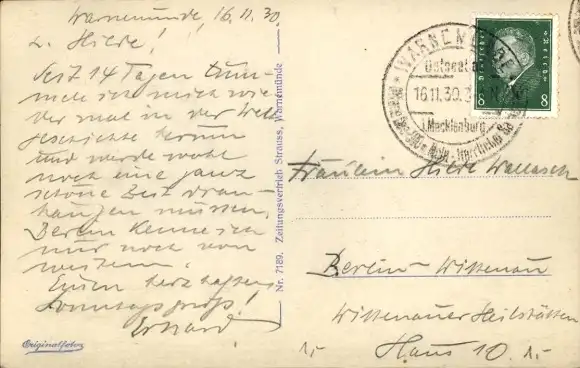 Warnemünde, 16.11.30.
L. Hilde!
Seit 14 Tagen tum-
mele ich mich wie
der mal in der Welt
geschichte herum
und werde wohl
noch eine ganz
schöne Zeit drau-
hängen müssen.
Berlin kenne ich
nur noch von
weitem.
Einen herzhaften
Sonntagsgruß!
Erhard.
Originalfoto
Nr. 7189. Zeitungsvertrieb Strauss, Warnemünde
WARNEMÜNDE
Ostseebad
16.11.30.
i. Mecklenburg
Deutsches Reich
8 8
Fräulein Hilde Wallasch
Berlin-Wittenau
Wittenauer Heilstätten
Haus 10.
1,- 1,-